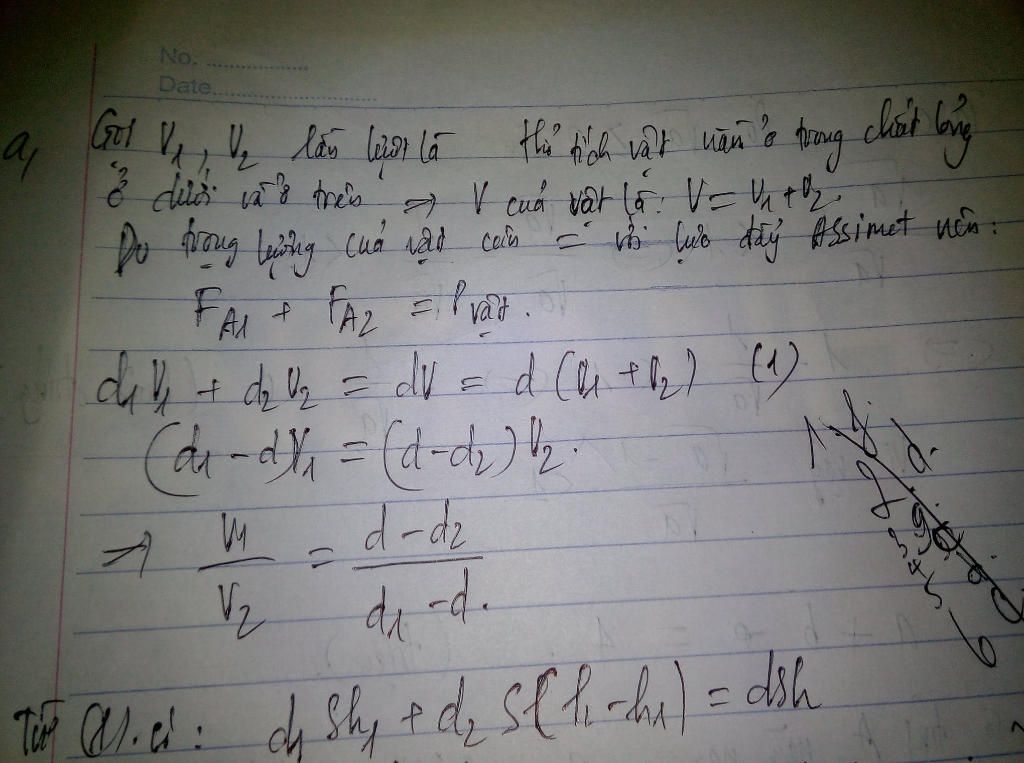 No. ..................
Date.............................
a, Gọi V₁, V₂ lần lượt là thể tích vật nằm ở trong chất lỏng
ở dưới và ở trên ⇒ V của vật là: V = V₁ + V₂.
Do trọng lượng của vật cân = với lực đẩy Assimet nên:
F_A1 + F_A2 = P vật.
d₁V₁ + d₂V₂ = dV = d (V₁ + V₂) (1)
(d₁ - d)V₁ = (d - d₂)V₂.
⇒ V₁/V₂ = (d - d₂)/(d₁ - d).
Từ (1). có: d₁Sh₁ + d₂S(h - h₁) = dSh